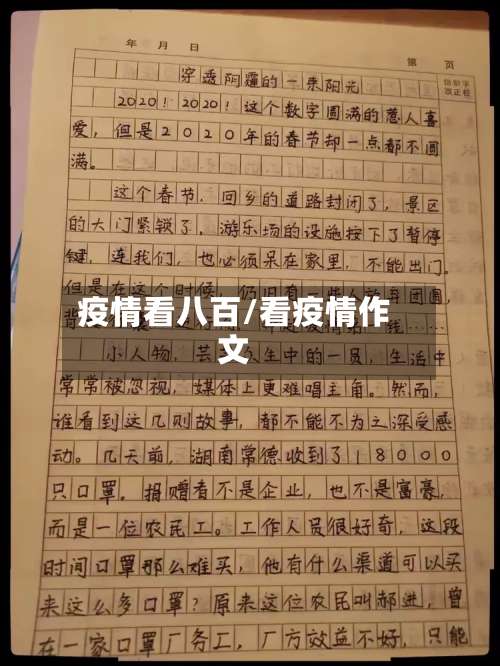 年 月 日
第 页
错别字
改正栏
穿透阴霾的一束阳光
2020！2020！这个数字圆满的惹人喜
爱，但是2020年的春节却一点都不圆
满。
这个春节，回乡的道路封闭了，景区
的大门紧锁了，游乐场的设施按下了暂停
键，连我们，也必须呆在家里，不能出门。
但是在这个时候，仍旧有一些人放弃团圆，
疫情看八百/看疫情作
文
小人物，芸芸众生中的一员，生活中
常常被忽视，媒体上更难唱主角。然而，
谁看到这几则故事，都不能不为之深受感
动。几天前，湖南常德收到了18000
只口罩。捐赠者不是企业，也不是富豪，
而是一位农民工。工作人员很好奇，这段
时间口罩那么难买，他有什么渠道可以买
来这么多口罩？原来这位农民叫郝进，曾
在一家口罩厂务工，厂方效益不好，只能